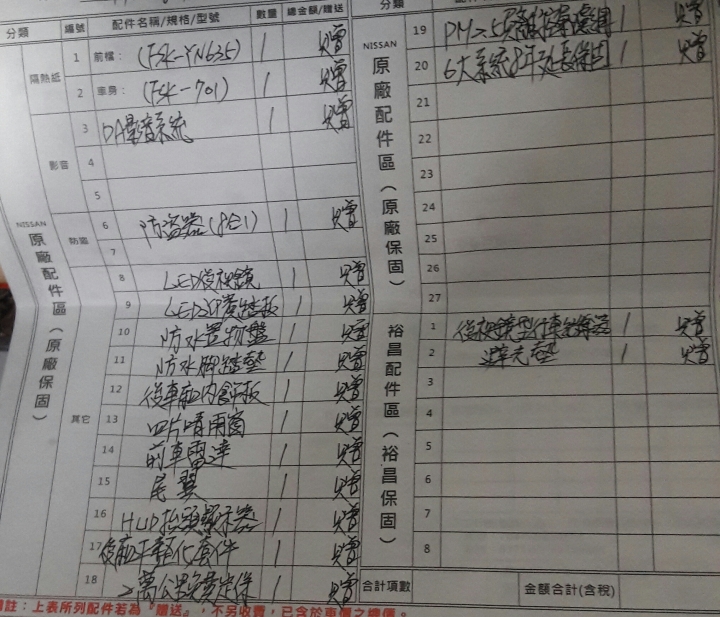 分類 編號 配件名稱/規格/型號 數量 總金額/贈送
NISSAN 原廠配件區(原廠保固)
隔熱紙
1 前檔: (FSK-YN635) 1 贈
2 車身: (FSK-701) 1 贈
影音
3 DA影音系統 1 贈
4
5
防盜
6 防盜器(8合1) 1 贈
7
其它
8 LED後視鏡 1 贈
9 LED迎賓踏板 1 贈
10 防水置物墊 1 贈
11 防水腳踏墊 1 贈
12 後車廂內飾板 1 贈
13 四片晴雨窗 1 贈
14 前車雷達 1 贈
15 尾翼 1 贈
16 HUD抬頭顯示器 1 贈
17 後廂平整化套件 1 贈
18 2萬公里免費定保 1 贈
備註:上表所列配件若為『贈送』,不另收費,已含於車價之總價。
分類
NISSAN 原廠配件區(原廠保固)
19 PM2.5 濾網 1 贈
20 6大系統8年延長保固 1 贈
21
22
23
24
25
26
27
裕昌配件區(裕昌保固)
1 後視鏡型行車紀錄器 1 贈
2 避光墊 1 贈
3
4
5
6
7
8
合計項數 金額合計(含稅)